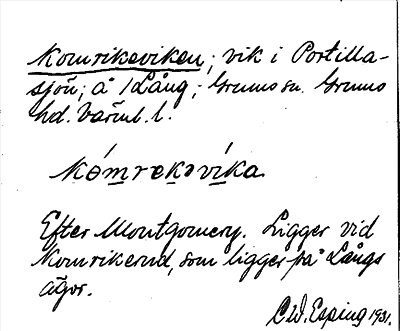 Komrikeviken; vik i Portilla-
sjön; å 1 Lång; Grums sn. Grums
hd. Värml. l.
Kómrekəvíka.
Efter Montgomery. Ligger vid
Komrikerud, som ligger på Långs
ägor.
C.W. Esping 1931.